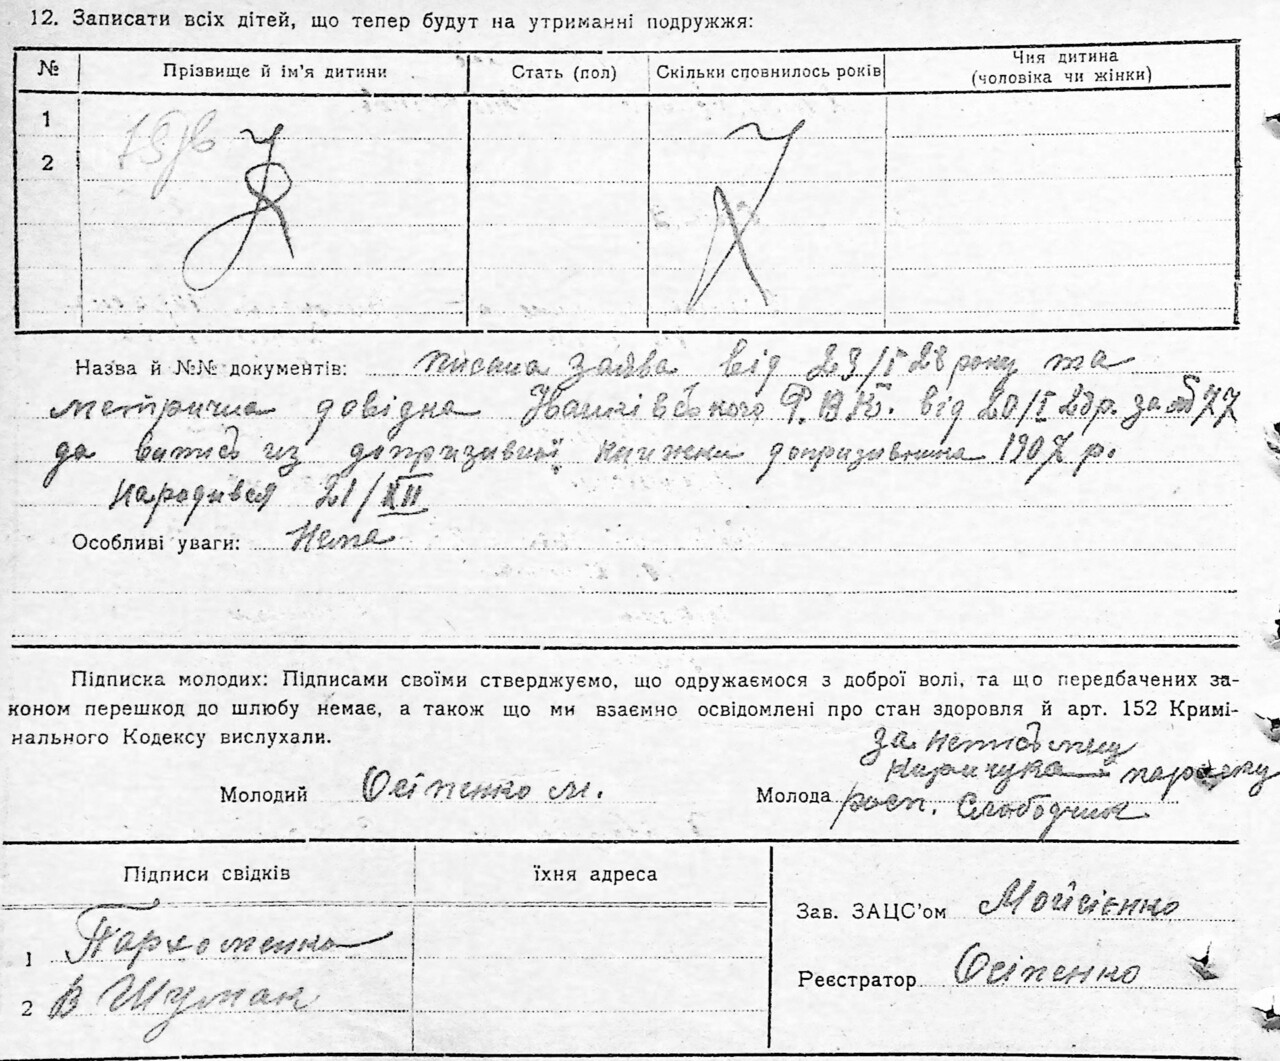 12. Записати всіх дітей, що тепер будут на утриманні подружжя:
№ Прізвище й ім'я дитини Стать (пол) Скільки сповнилось років Чия дитина (чоловіка чи жінки)
1
2
Назва й №№ документів: писана заява від 23/I 28 року та
метрична довідка Іванківського Р.В.К. від 20/I 28р. за № 77
да витись из допризивної книжки допризивника 1907 р.
народився 21/XII
Особливі уваги: Нема
Підписка молодих: Підписами своїми стверджуємо, що одружаємося з доброї волі, та що передбачених за-
коном перешкод до шлюбу немає, а також що ми взаємно освідомлені про стан здоровля й арт. 152 Кримі-
нального Кодексу вислухали.
за неписьмену
Молодий Осіпенко М.
Молода росп. Слободчик
Підписи свідків їхня адреса
Зав. ЗАЦС'ом Мойсієнко
1 Пархоменко
Реєстратор Осіпенко
2 В Шумак